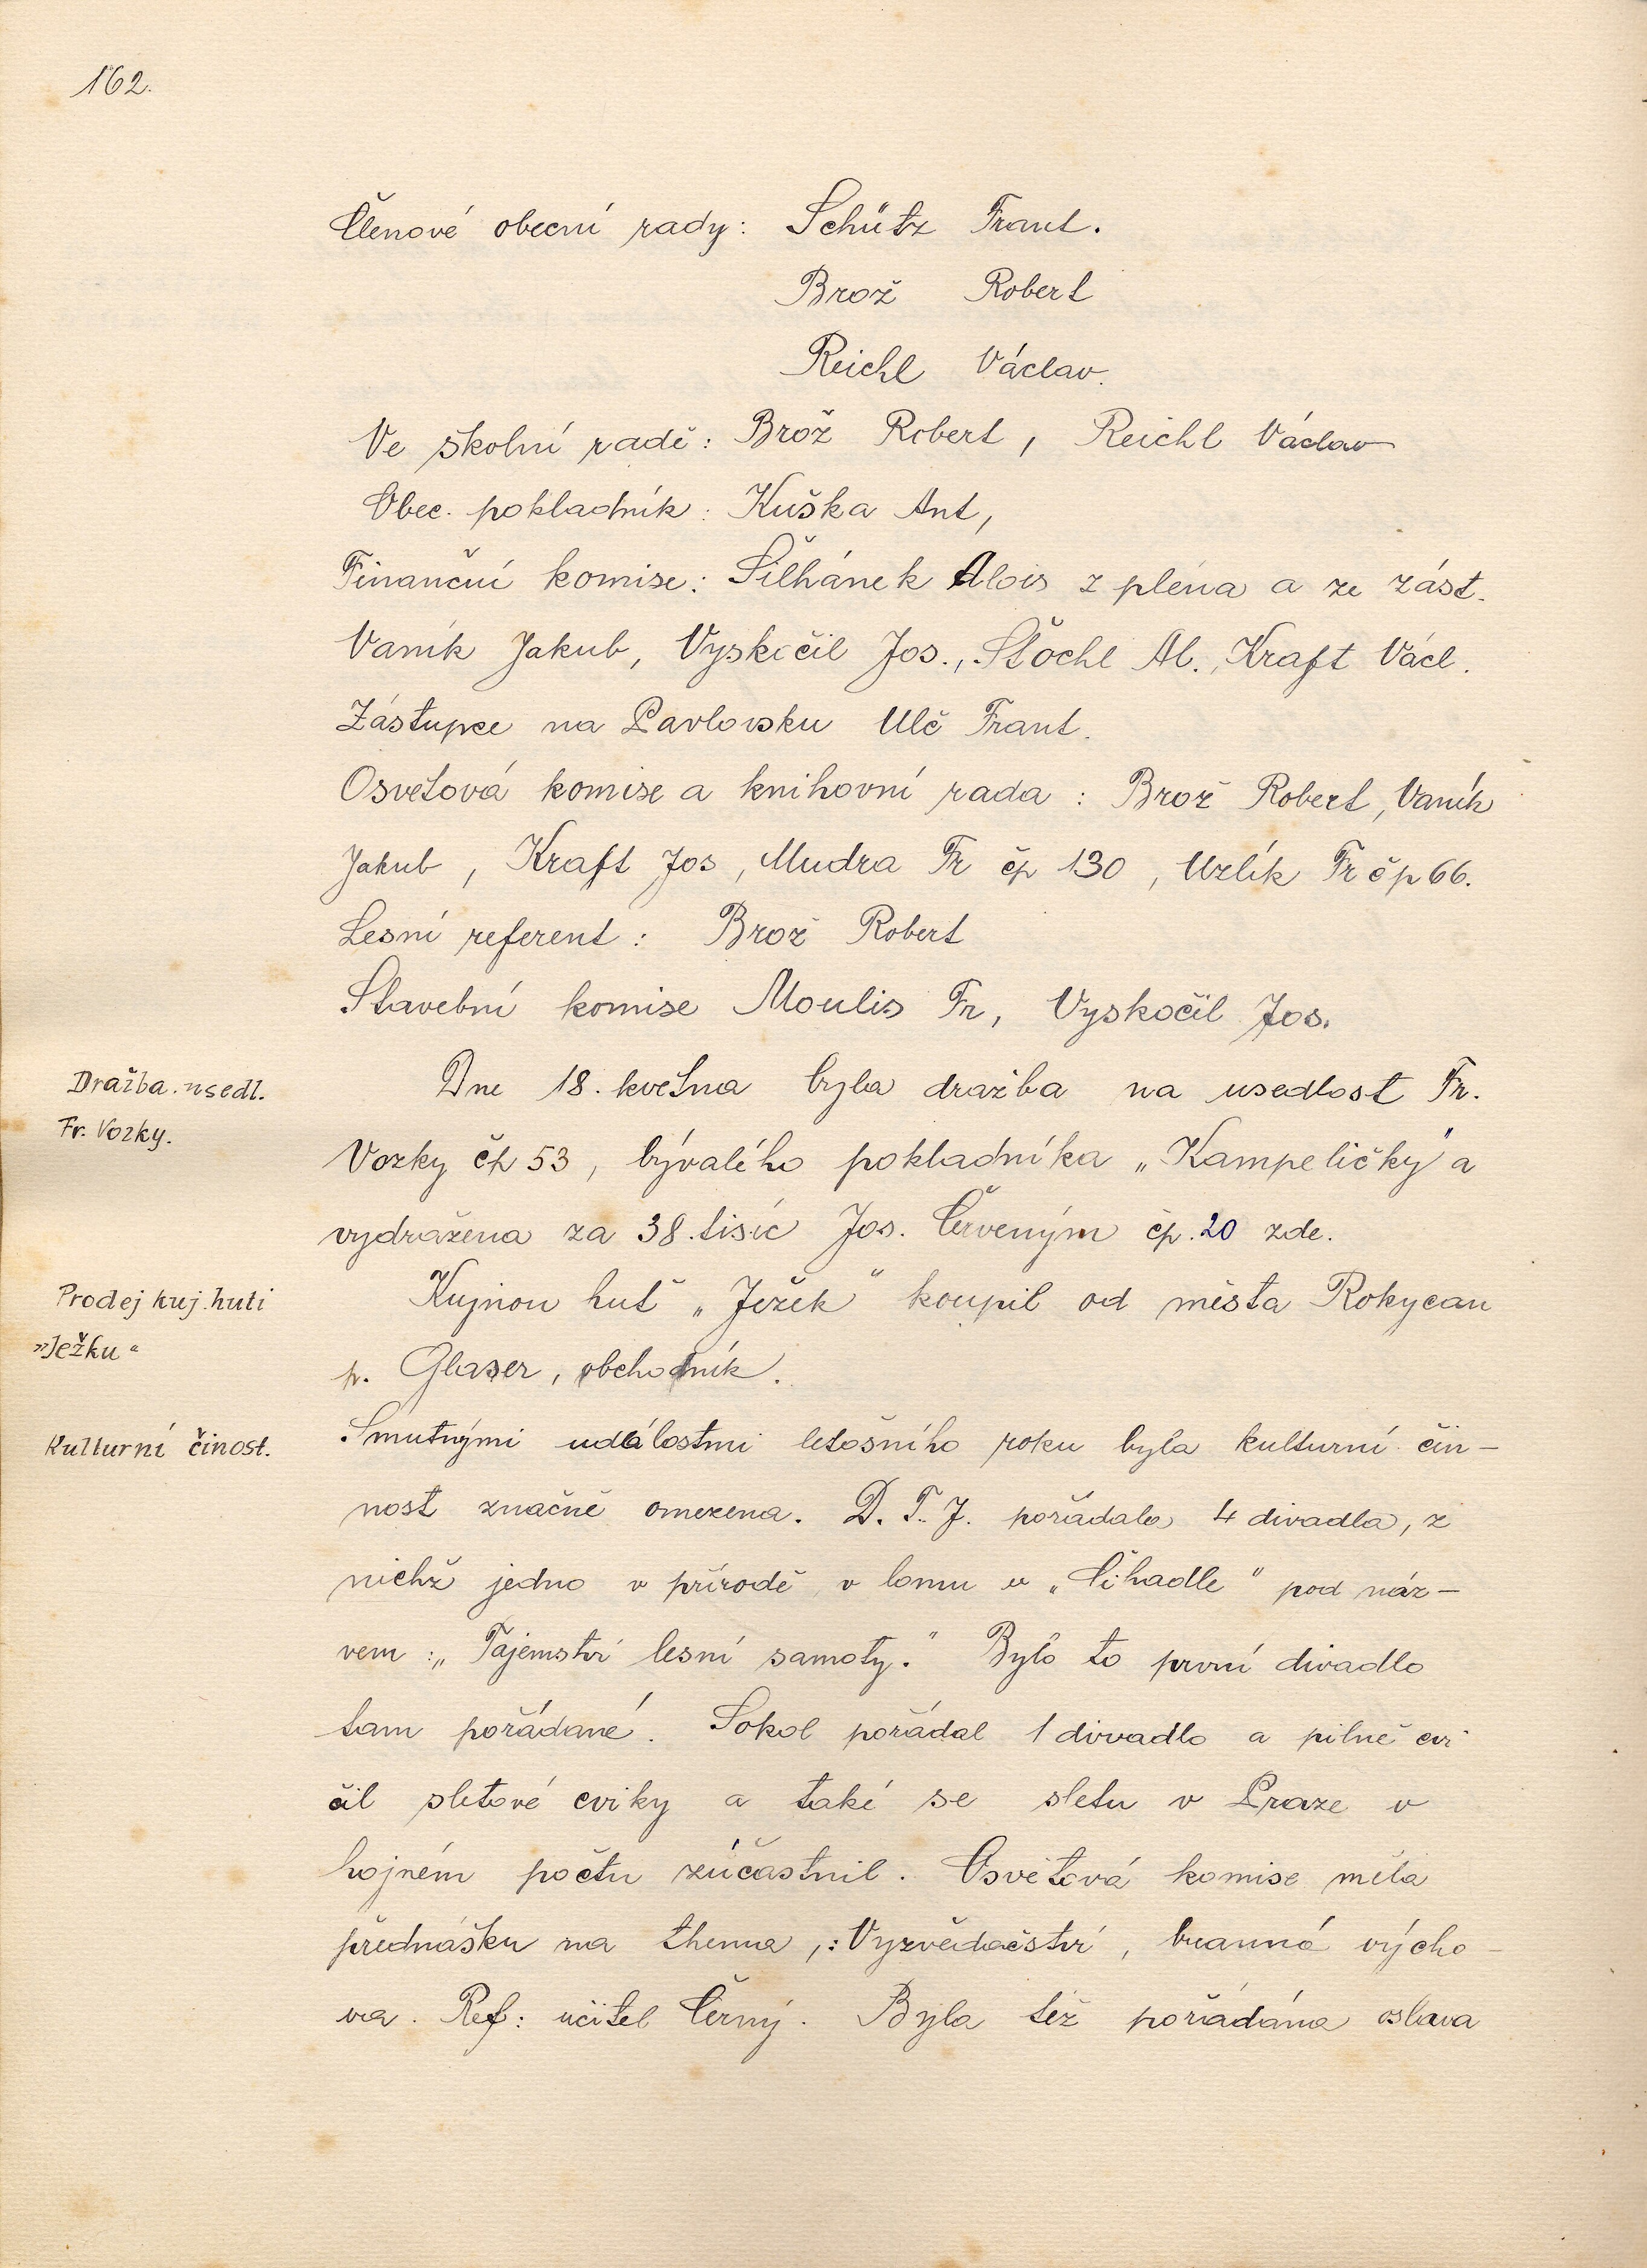 162.
Členové obecní rady: Schütz Frant.
Brož Robert
Reichl Václav.
Ve školní radě: Brož Robert, Reichl Václav
Obec. pokladník: Kuška Ant,
Finanční komise: Šilhánek Alois z pléna a ze zást.
Vaník Jakub, Vyskočil Jos., Štochl Al., Kraft Václ.
Zástupce na Pavlovsku Ulč Frant.
Osvětová komise a knihovní rada: Brož Robert, Vaník
Jakub, Kraft Jos, Mudra Fr čp 130, Uzlík Fr čp 66.
Lesní referent: Brož Robert
Stavební komise Moulis Fr, Vyskočil Jos.
Dražba usedl.
Fr. Vozky.
Dne 18. května byla dražba na usedlost Fr.
Vozky čp 53, bývalého pokladníka „Kampeličky" a
vydražena za 38.tisíc Jos. Červeným čp. 20 zde.
Prodej kuj. huti
„Ježku"
Kujnou huť „Ježek" koupil od města Rokycan
p. Glaser, obchodník.
Kulturní činost.
Smutnými událostmi letošního roku byla kulturní čin-
nost značně omezena. D. T. J. pořádala 4 divadla, z
nichž jedno v přírodě v lomu u „Čihadle" pod náz-
vem: „Tajemství lesní samoty." Bylo to první divadlo
tam pořádané. Sokol pořádal 1 divadlo a pilně cvi
čil sletové cviky a také se sletu v Praze v
hojném počtu zúčastnil. Osvětová komise měla
přednášku na thema,: Vyzvědačství, branná výcho-
va. Ref: učitel Černý. Byla též pořádána oslava